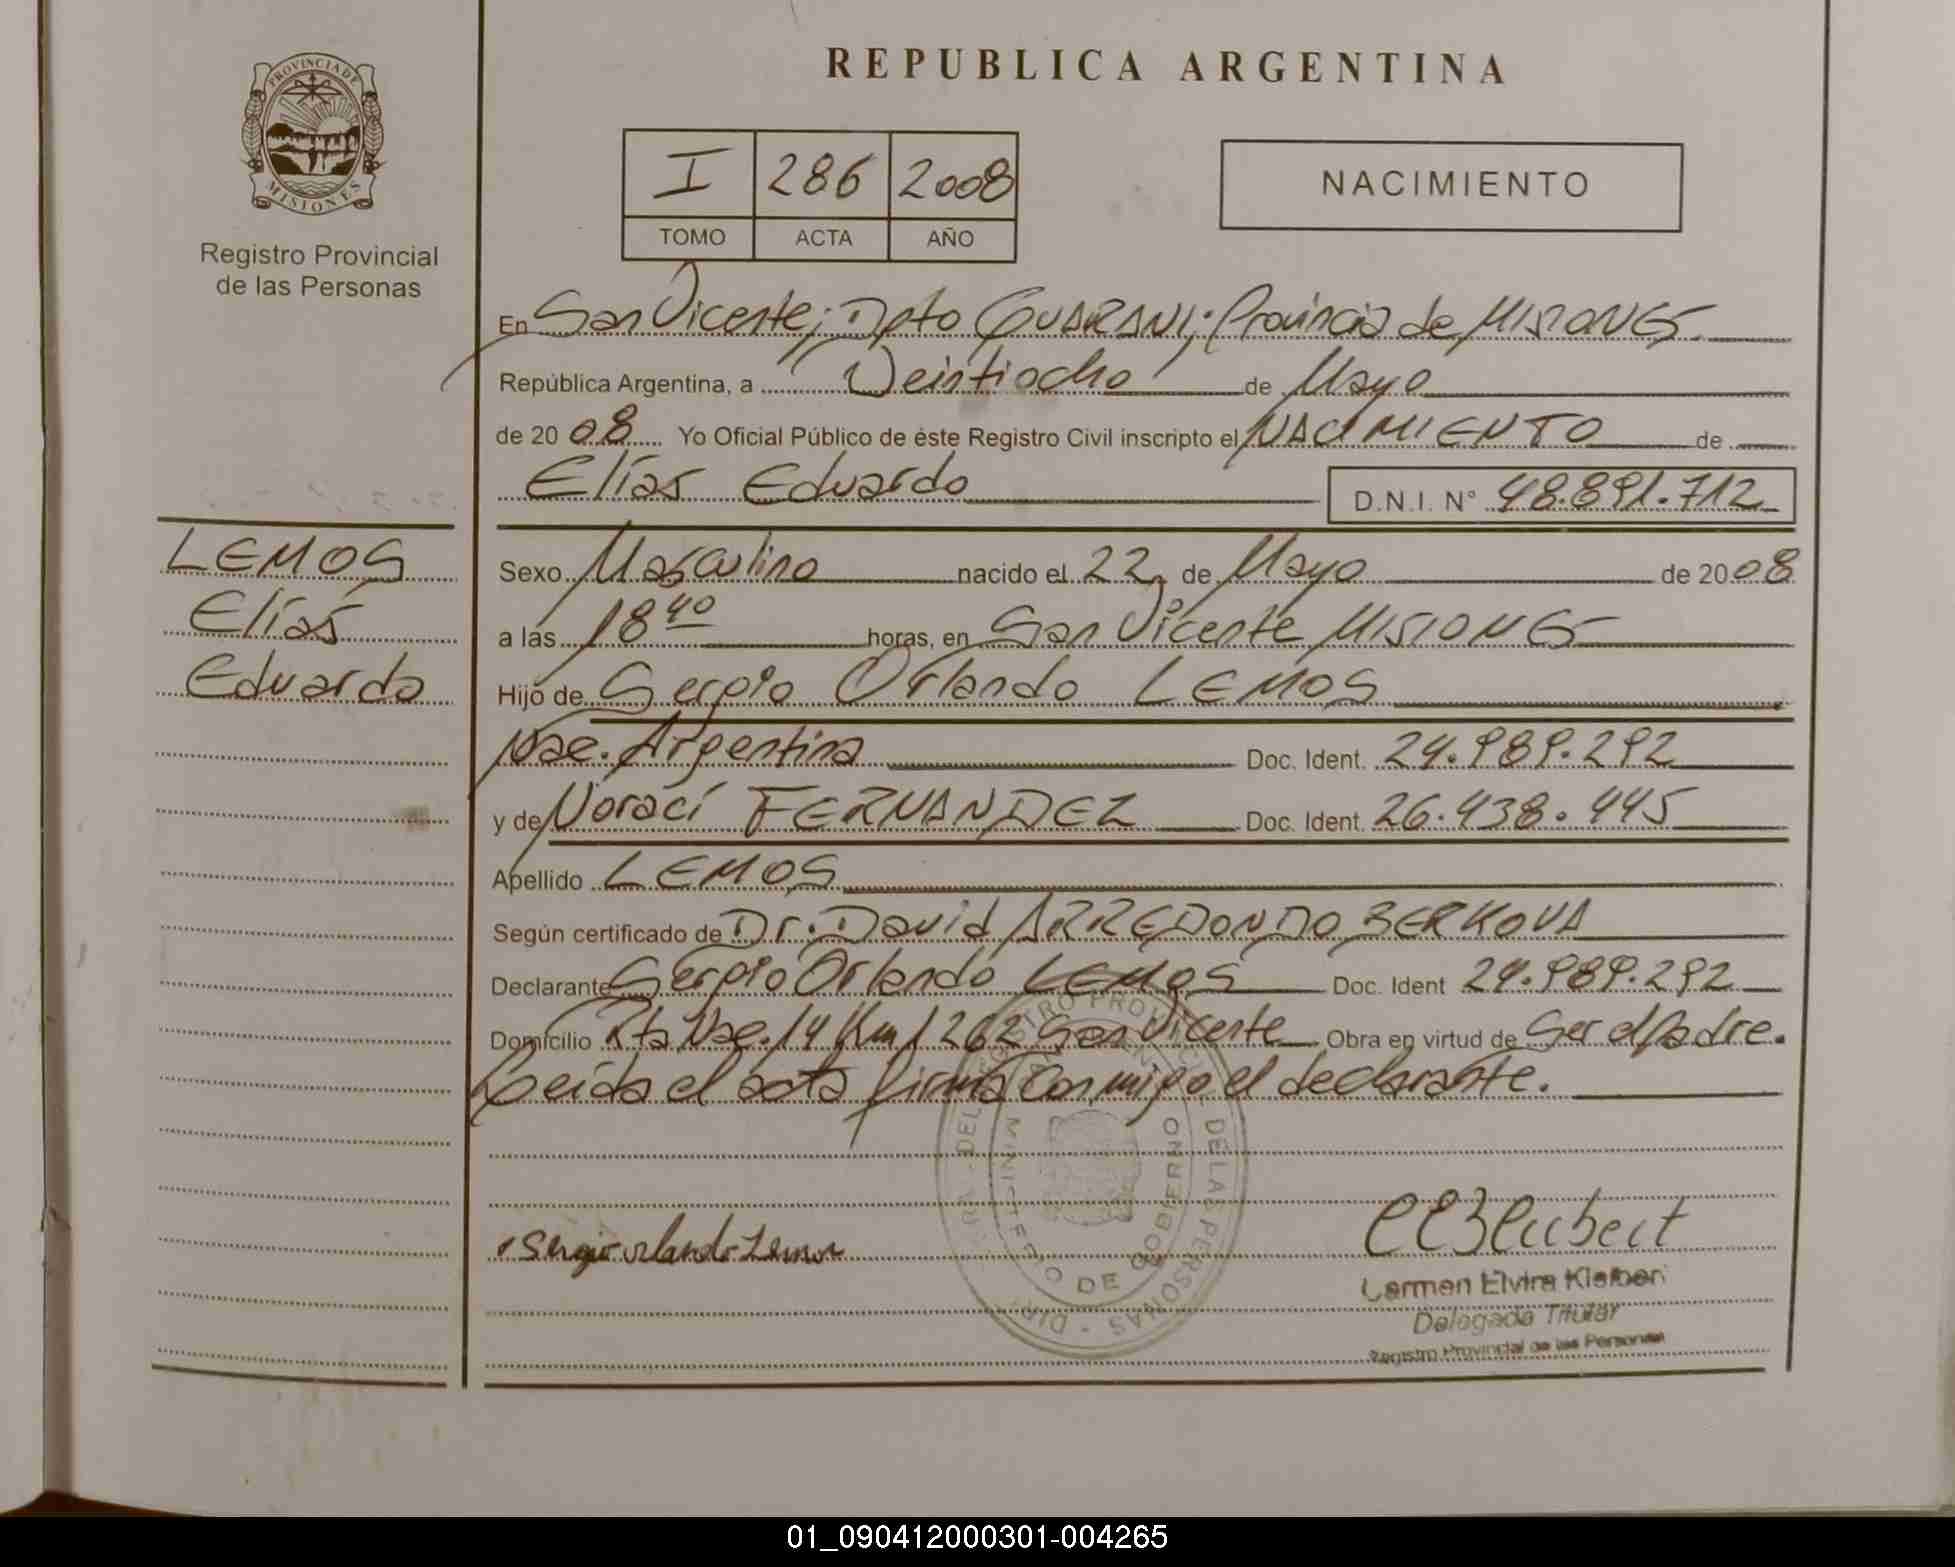 PROVINCIA DE
MISIONES
Registro Provincial
de las Personas
REPUBLICA ARGENTINA
I 286 2008
TOMO ACTA AÑO
NACIMIENTO
En San Vicente; Dpto GUARANI; Provincia de MISIONES
República Argentina, a Veintiocho de Mayo
de 20 08 Yo Oficial Público de éste Registro Civil inscripto el NACIMIENTO de
Elías Eduardo D.N.I. N° 48.891.712
LEMOS
Elías
Eduardo
Sexo Masculino nacido el 22 de Mayo de 20 08
a las 18 40 horas, en San Vicente MISIONES
Hijo de Sergio Orlando LEMOS
Nac. Argentina Doc. Ident. 24.989.292
y de Noraci FERNANDEZ Doc. Ident. 26.438.445
Apellido LEMOS
Según certificado de Dr. David ARREDONDO BERKOVA
Declarante Sergio Orlando LEMOS Doc. Ident 24.989.292
Domicilio Rta Nac. 14 Km 1262 San Vicente Obra en virtud de Ser el Padre.
Leída el acta firma conmigo el declarante.
MINISTERIO DE GOBIERNO
DE LAS PERSONAS
Sergio orlando Lemos
Carmen Elvira
Delegada Titular
Registro Provincial de las Personas
01_090412000301-004265